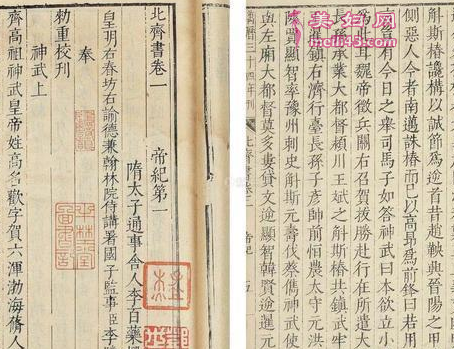 斛斯椿讒構以誠節為逆首昔趙鞅興晉陽之甲
側惡人今者南邁誅椿而已以高昂為前鋒曰若用
言豈有今日之舉司馬子如答神武曰本欲立小
為此耳魏帝徵兵關右召賀拔勝赴行在所遣大
長孫承業大都督潁川王斌之斛斯椿共鎮武牢
陽鎮石濟行臺長孫子彥帥前恒農太守元洪
陝賈顯智率豫州刺史斛斯元壽伐蔡儁神武使
血左廂大都督莫多婁貸文逆顯智韓賢逆暹元
萬曆三十四年刊
帝紀 五
北齊書卷一 帝紀第一
隋太子通事舍人李百藥
皇明右春坊右諭德兼翰林院侍講署國子監事臣李
奉
勑重校刊
神武上
齊高祖神武皇帝姓高名歡字賀六渾渤海蓨人